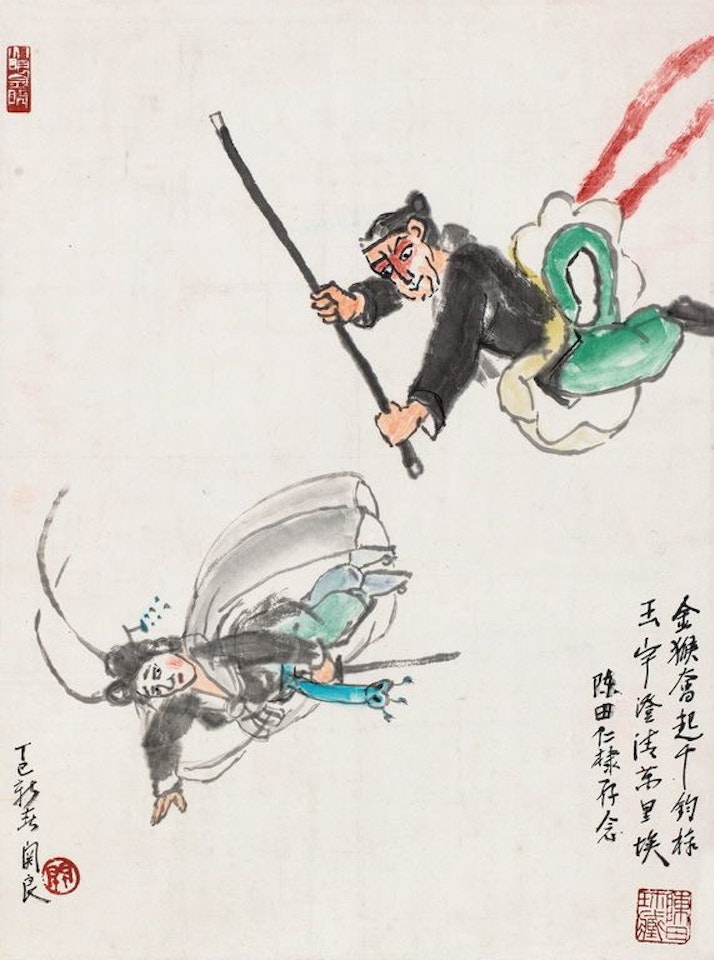 金猴奋起千钧棒
玉宇澄清萬里埃
陈田仁棣存念
丁巳新春 関良